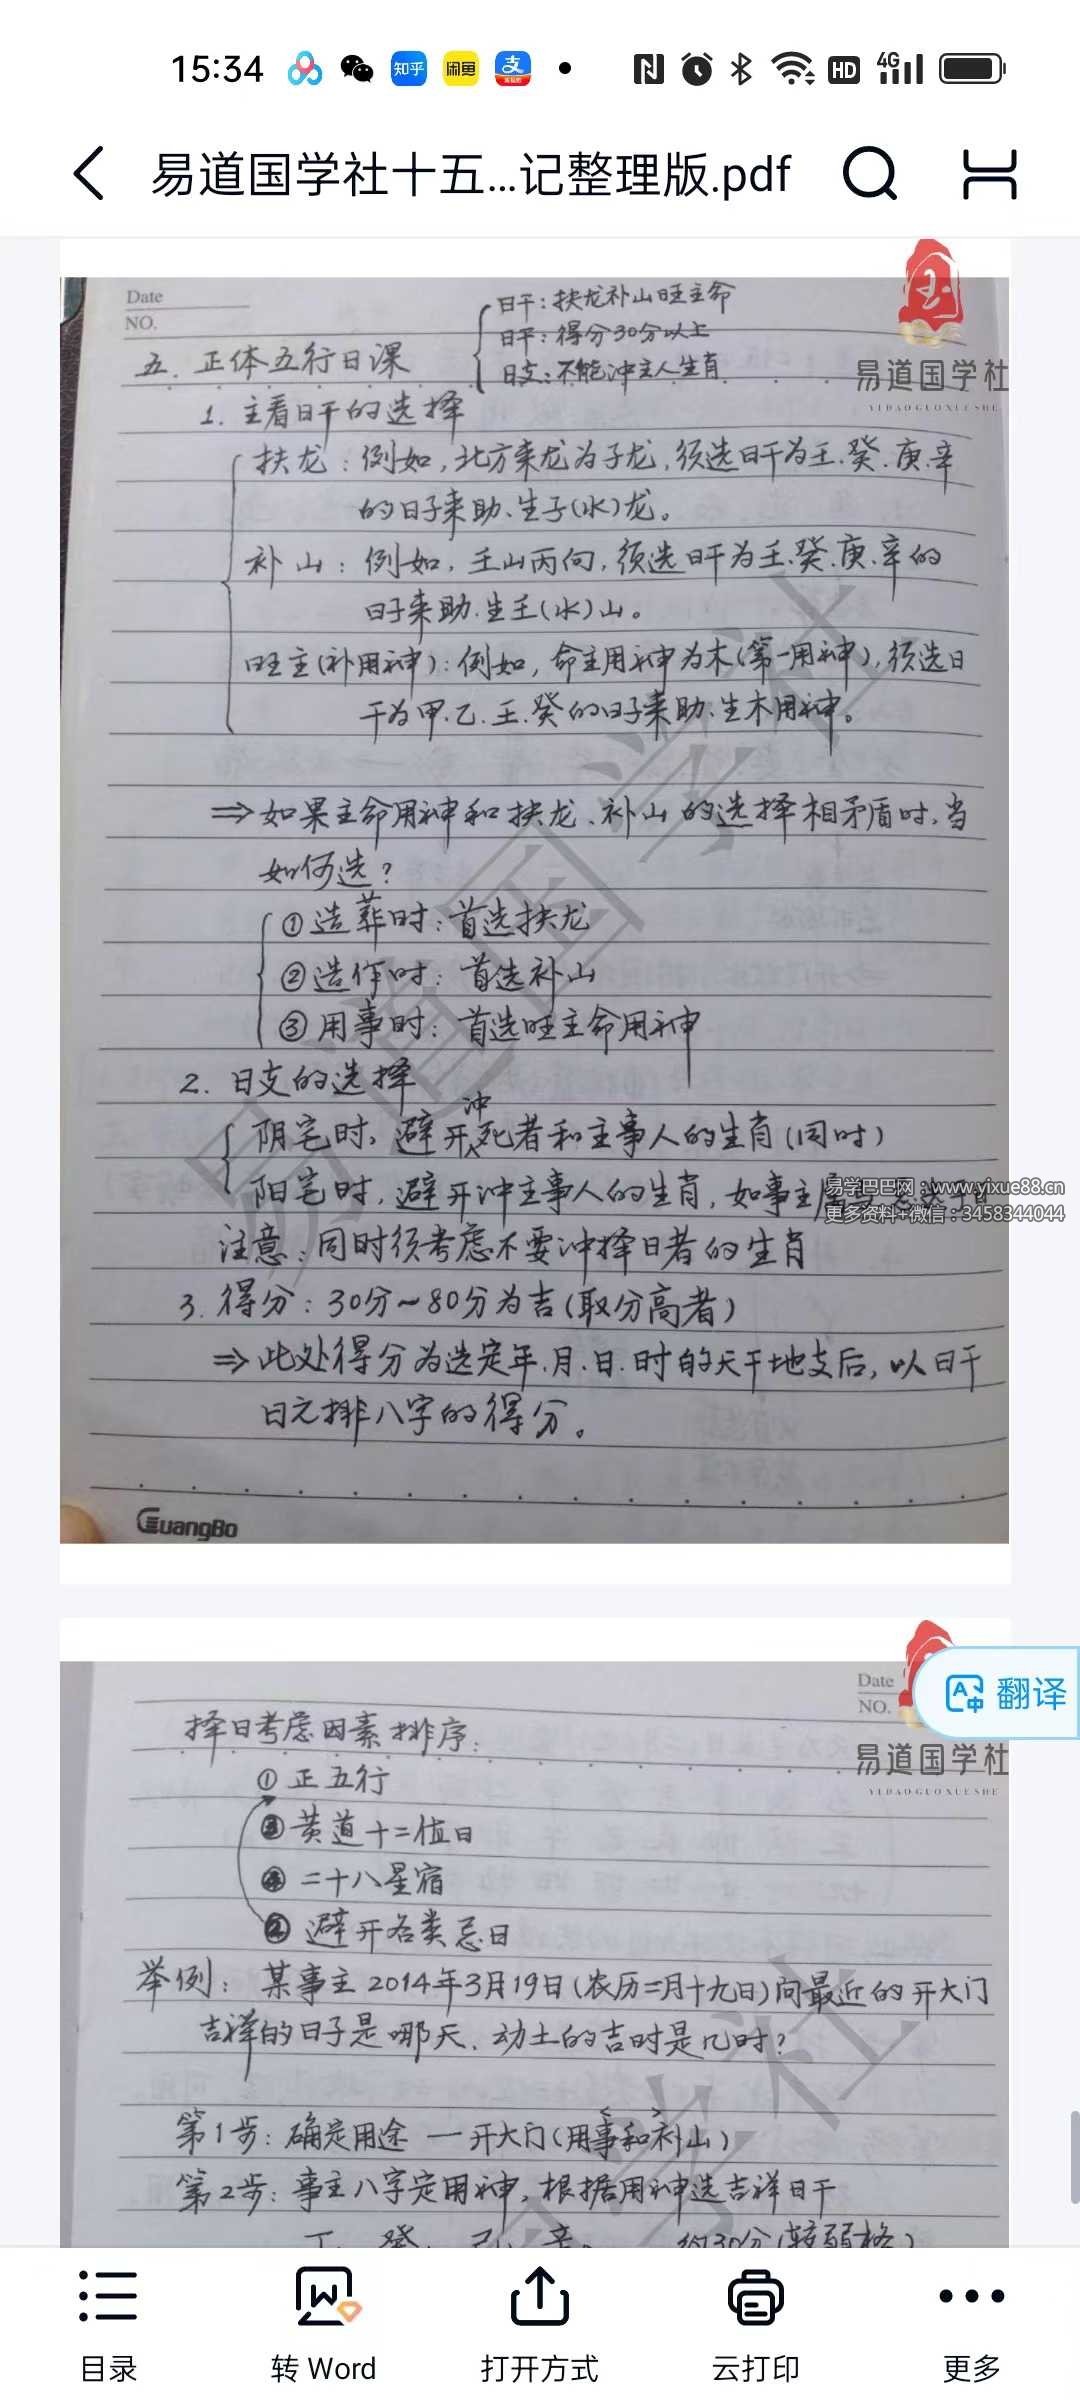 15:34
知乎
闲鱼
支
HD
4G
易道国学社十五...记整理版.pdf
Date
NO.
易道国学社
YIDAOGUOXUESHE
日干：扶龙补山旺主命
日干：得分30分以上
日支：不能冲主人生肖
五. 正体五行日课
1. 主看日干的选择
扶龙：例如，北方来龙为子龙，须选日干为壬.癸.庚.辛
的日子来助、生子(水)龙。
补山：例如，壬山丙向，须选日干为壬.癸.庚.辛的
日子来助.生壬(水)山。
旺主(补用神)：例如，命主用神为木(第一用神)，须选日
干为甲.乙.壬.癸的日子来助.生木用神。
⇒如果主命用神和扶龙、补山的选择相矛盾时，当
如何选？
①造葬时：首选扶龙
②造作时：首选补山
③用事时：首选旺主命用神
2. 日支的选择
阴宅时，避开冲死者和主事人的生肖(同时)
阳宅时，避开冲主事人的生肖，如事主属
易学巴巴网：www.yixue88.cn
更多资料+微信：3458344044
注意：同时须考虑不要冲择日者的生肖
3. 得分：30分～80分为吉(取分高者)
⇒此处得分为选定年.月.日.时的天干地支后，以日干
日元排八字的得分。
GuangBo
易道国学社
Date
NO.
翻译
易道国学社
YIDAOGUOXUESHE
择日考虑因素排序：
①正五行
③黄道十二值日
④二十八星宿
②避开各类忌日
举例：某事主2014年3月19日(农历二月十九日)问最近的开大门
吉祥的日子是哪天、动土的吉时是几时？
第1步：确定用途 — 开大门(用事和补山)
第2步：事主八字定用神，根据用神选吉祥日干
丁 癸 己 辛 约30分(较弱格)
国学社
目录
转 Word
打开方式
云打印
更多